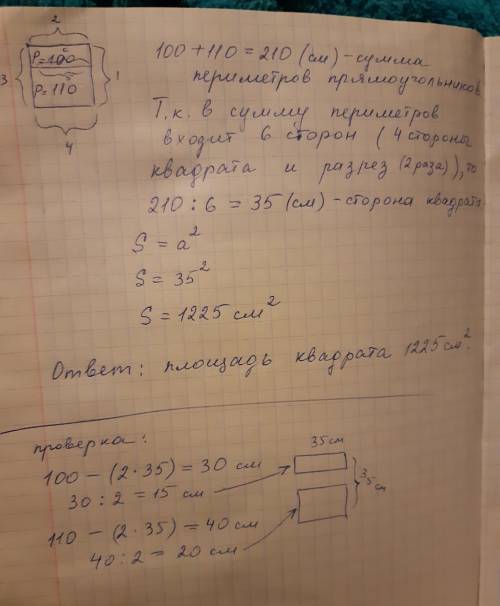 2
P=100
3
1
P=110
4
100+110=210 (см) - сумма
периметров прямоугольников
Т.к. в сумму периметров
входит 6 сторон (4 стороны
квадрата и разрез (2 раза)), то
210 : 6 = 35 (см) - сторона квадрата
S = a²
S = 35²
S = 1225 см²
Ответ: площадь квадрата 1225 см².
проверка:
100 - (2·35) = 30 см
30 : 2 = 15 см
110 - (2·35) = 40 см
40 : 2 = 20 см
35 см
35 см